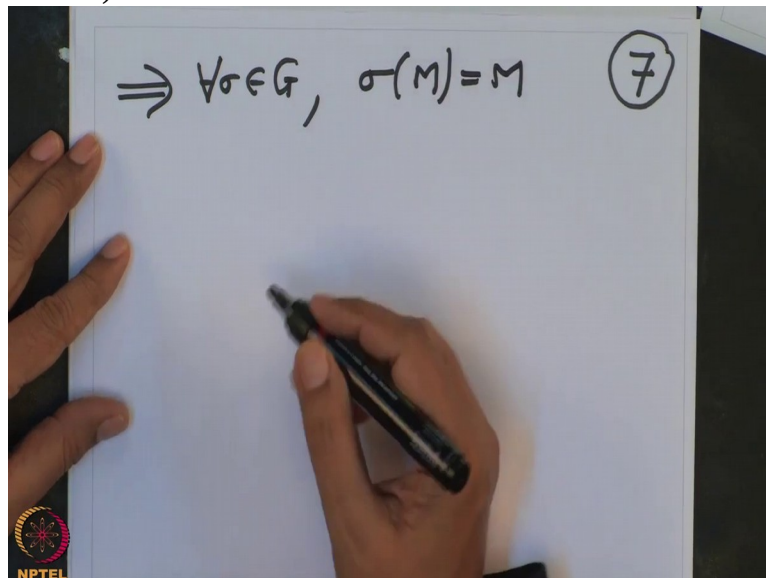 ⇒ ∀σ∈G, σ(M)=M
7
NPTEL